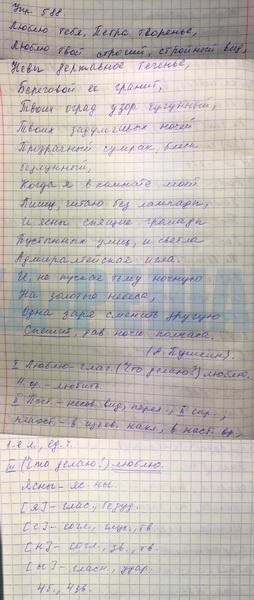 Упр. 588.
Люблю тебя, Петра творенье,
Люблю твой строгий, стройный вид,
Невы державное теченье,
Береговой её гранит,
Твоих оград узор чугунный,
Твоих задумчивых ночей
Прозрачный сумрак, блеск
безлунный,
Когда я в комнате моей
Пишу, читаю без лампады,
И ясны спящие громады
Пустынных улиц, и светла
Адмиралтейская игла.
И, не пуская тьму ночную
На золотые небеса,
Одна заря сменить другую
Спешит, дав ночи полчаса.
(А. Пушкин).
I Люблю - глаг. (Что делаю?) люблю.
Н. ф. - любить.
II Пост. - несов. вид, перех., II спр.,
непост. - в изъяв. накл., в наст. вр.,
1-е л., ед. ч.
III (Что делаю?) люблю.
Ясны - яс-ны.
[я] - глас., безуд.
[с] - согл., глух., тв.
[н] - согл., зв., тв.
[ы] - гласн., удар.
4б., 4зв.